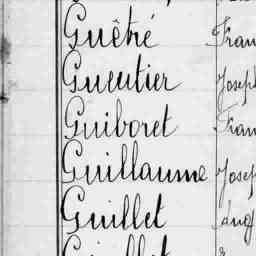 Guêtré Fran
Gueutier Joseph
Guiboret Fran
Guillaume Josep
Guillet